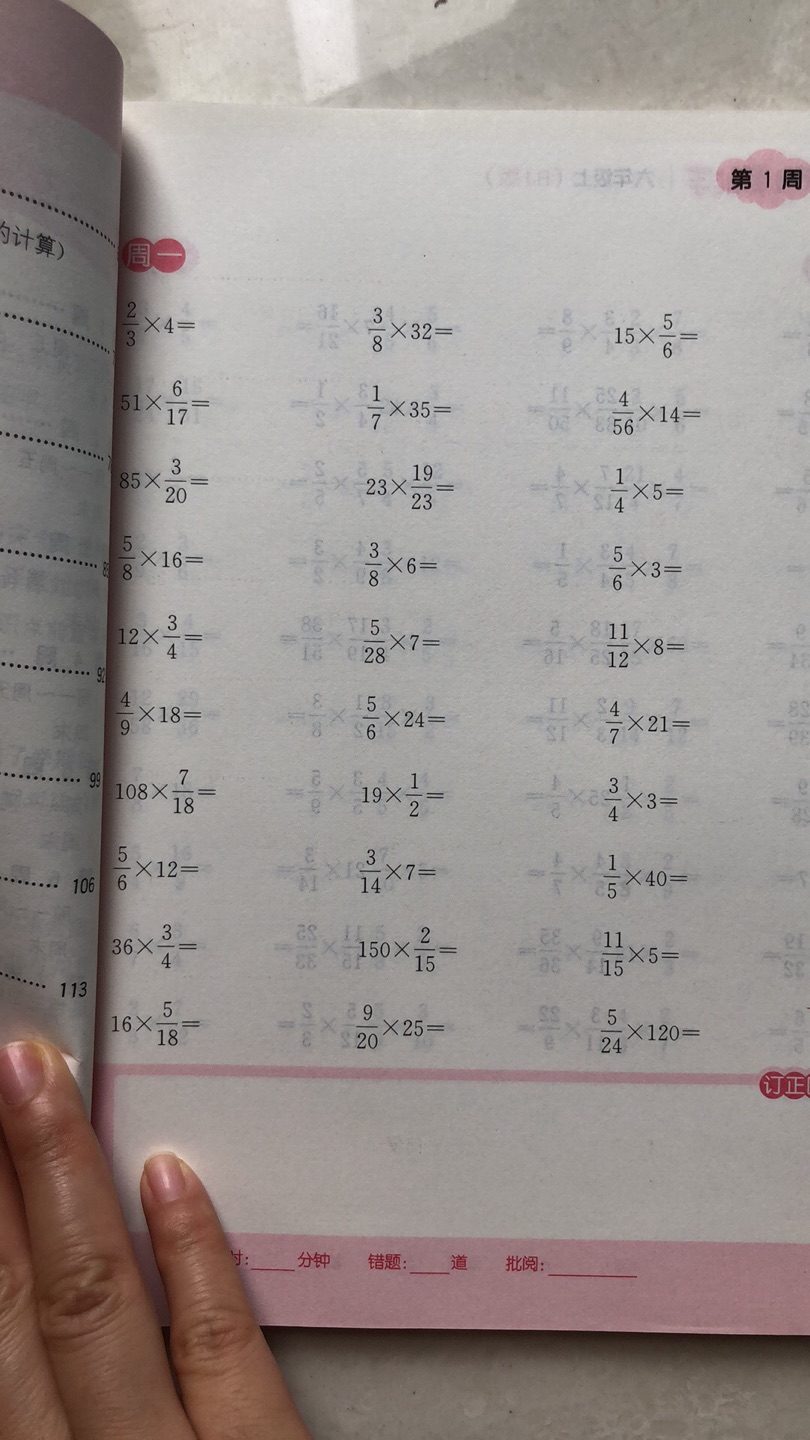 的计算）
85
92
99
106
113
第 1 周
周一
2/3×4= 3/8×32= 15×5/6=
51×6/17= 1/7×35= 4/56×14=
85×3/20= 23×19/23= 1/4×5=
5/8×16= 3/8×6= 5/6×3=
12×3/4= 5/28×7= 11/12×8=
4/9×18= 5/6×24= 4/7×21=
108×7/18= 19×1/2= 3/4×3=
5/6×12= 3/14×7= 1/5×40=
36×3/4= 150×2/15= 11/15×5=
16×5/18= 9/20×25= 5/24×120=
订正
时:____分钟 错题:____道 批阅:________